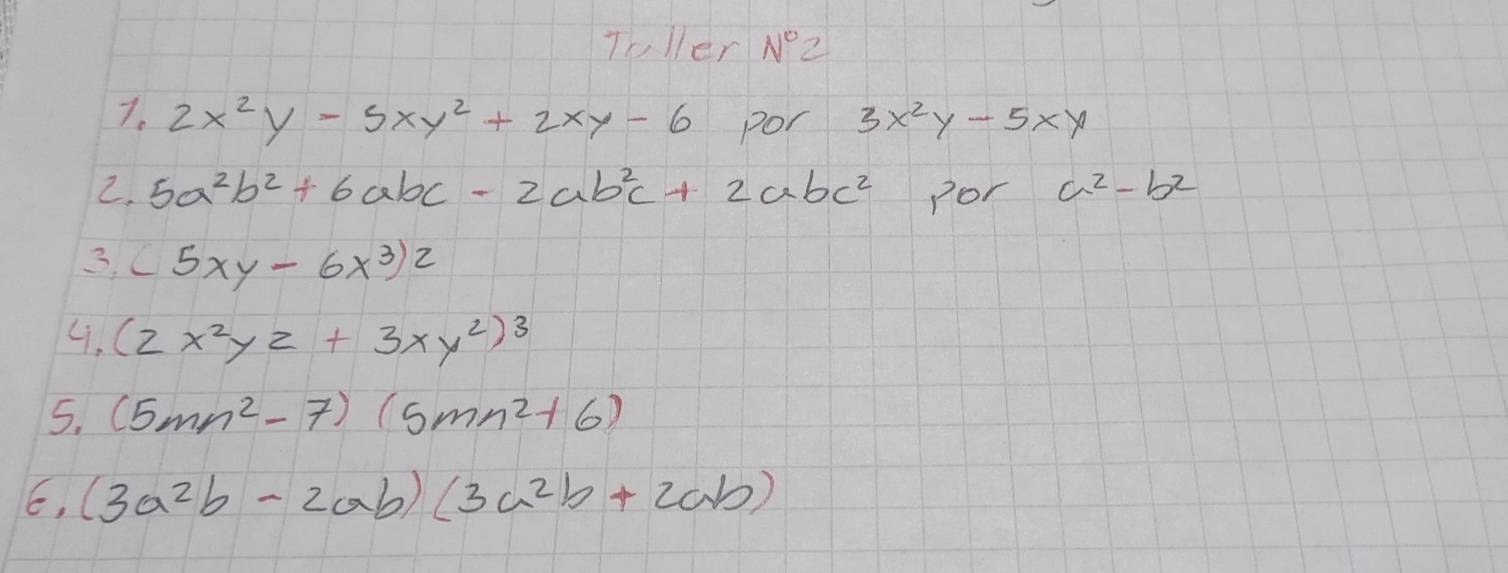 Taller N°2
1. 2x²y - 5xy² + 2xy - 6 por 3x²y - 5xy
2. 5a²b² + 6abc - 2ab²c + 2abc² por a² - b²
3. (5xy - 6x³)2
4. (2x²yz + 3xy²)³
5. (5mn² - 7) (5mn² + 6)
6. (3a²b - 2ab) (3a²b + 2ab)